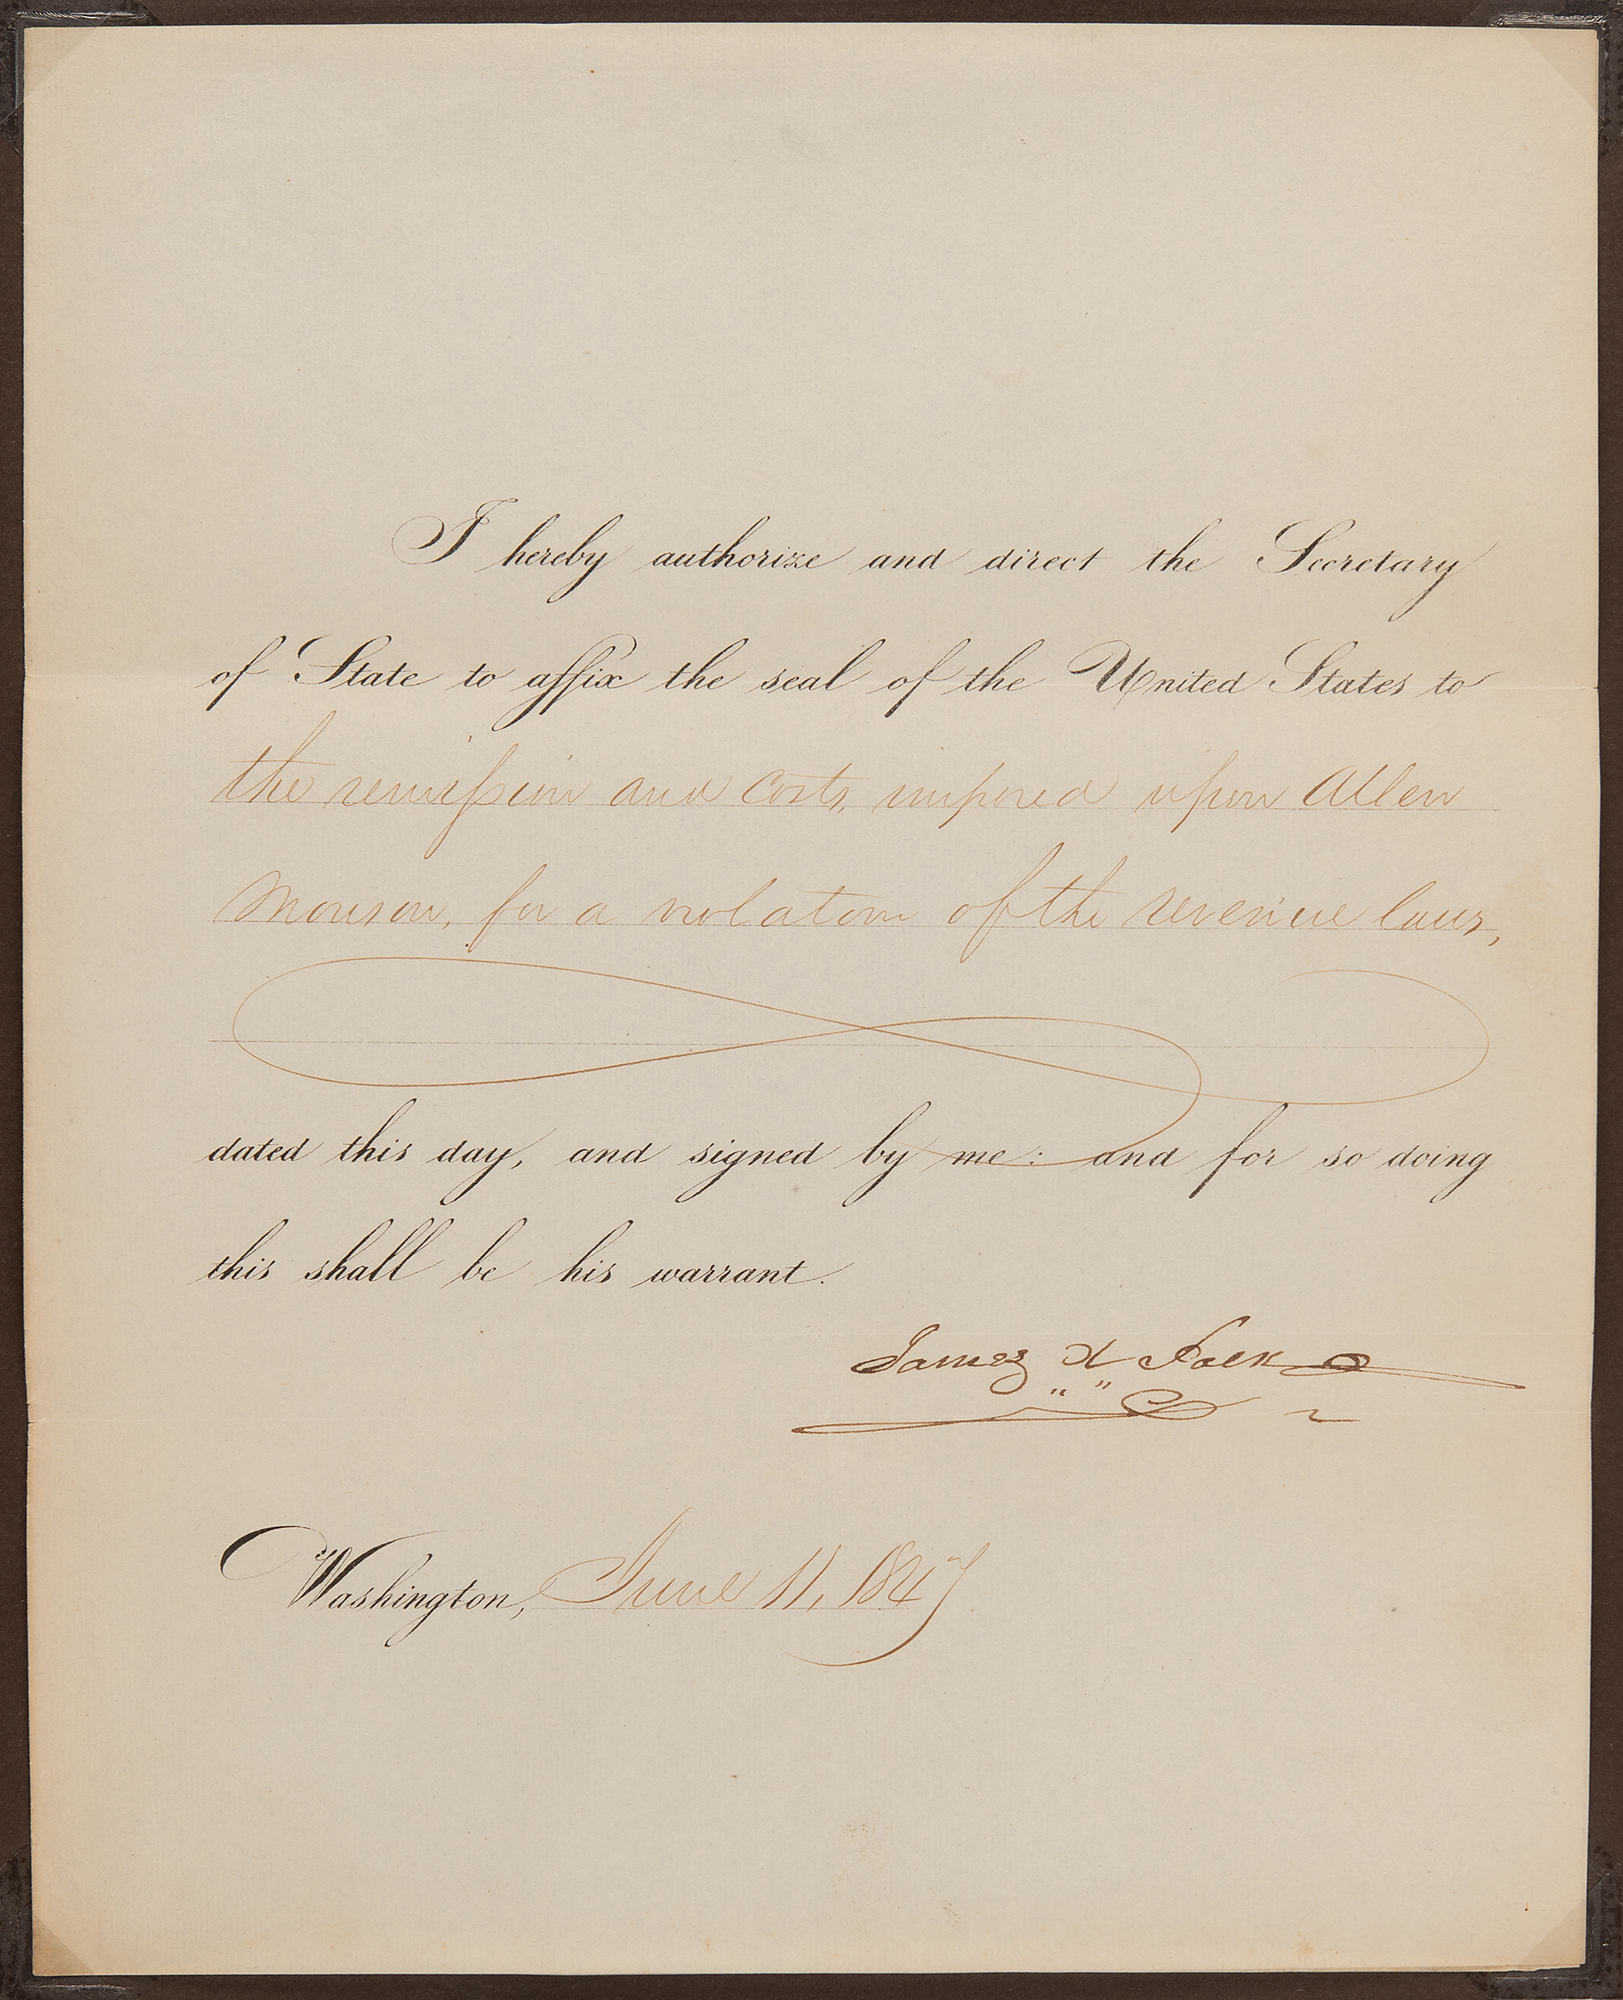 I hereby authorize and direct the Secretary
of State to affix the seal of the United States to
the remission and costs, imposed upon Allen
Monson, for a violation of the revenue laws,
dated this day, and signed by me: and for so doing
this shall be his warrant.
James K Polk
Washington, June 11, 1847